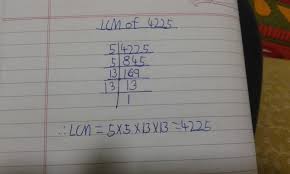 LCM of 4225
5|4225
5|845
13|169
13|13
|1
∴ LCM = 5×5×13×13=4225